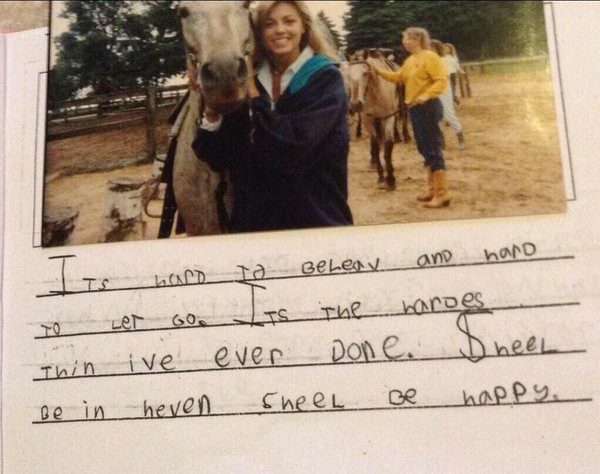 ITS HARD TO BeLeav AND HARD
TO LeT GO. ITS THE HARDES
THIN ive ever DONE. SheeL
Be in heven SheeL Be HAPPY.